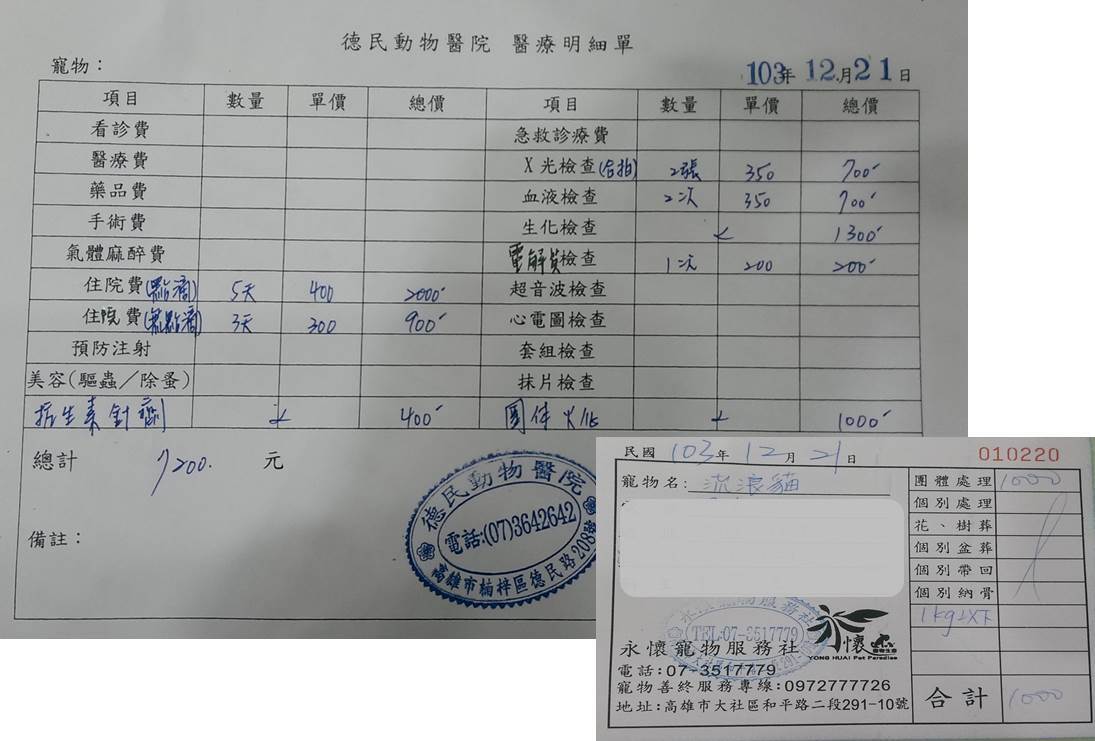 德民動物醫院 醫療明細單
寵物：
103年 12月21日
項目 數量 單價 總價 項目 數量 單價 總價
看診費 急救診療費
醫療費 X光檢查(合拍) 2張 350 700
藥品費 血液檢查 2次 350 700
手術費 生化檢查 1300
氣體麻醉費 電解質檢查 1次 200 200
住院費(點滴) 5天 400 2000 超音波檢查
住院費(無點滴) 3天 300 900 心電圖檢查
預防注射 套組檢查
美容(驅蟲／除蚤) 抹片檢查
抗生素針劑 400 團体火化 1000
總計 7200. 元
備註：
德民動物醫院
電話:(07)3642642
高雄市楠梓區德民路208號
民國 103年 12月 21日 010220
寵物名: 流浪貓
團體處理 1000
個別處理
花、樹葬
個別盆葬
個別帶回
個別納骨
1kg以下
合計 1000
TEL:07-3517779
永懷
YONG HUAI Pet Paradise
永懷寵物服務社
電話:07-3517779
寵物善終服務專線:0972777726
地址:高雄市大社區和平路二段291-10號